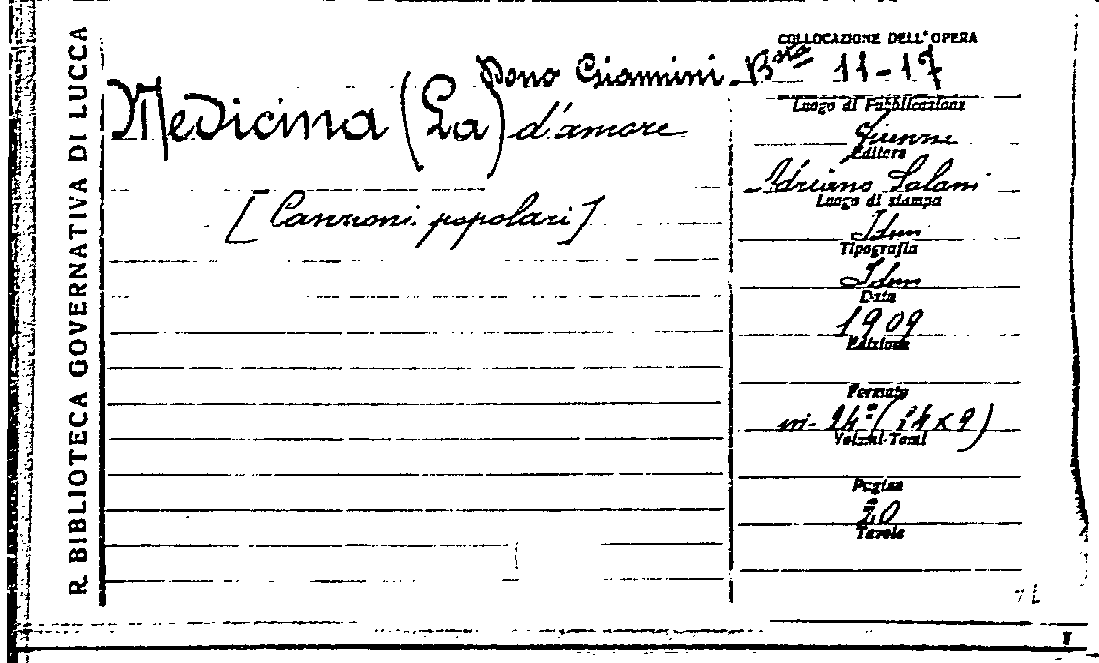 R. BIBLIOTECA GOVERNATIVA DI LUCCA
COLLOCAZIONE DELL'OPERA
Dono Giannini - Bsta 11-17
Medicina (La) d'amore
[Canzoni popolari]
Luogo di Pubblicazione
Firenze
Editore
Adriano Salani
Luogo di stampa
Idem
Tipografia
Idem
Data
1909
Edizione
Formato
in-24° (14 x 9)
Volumi-Tomi
Pagine
20
Tavole